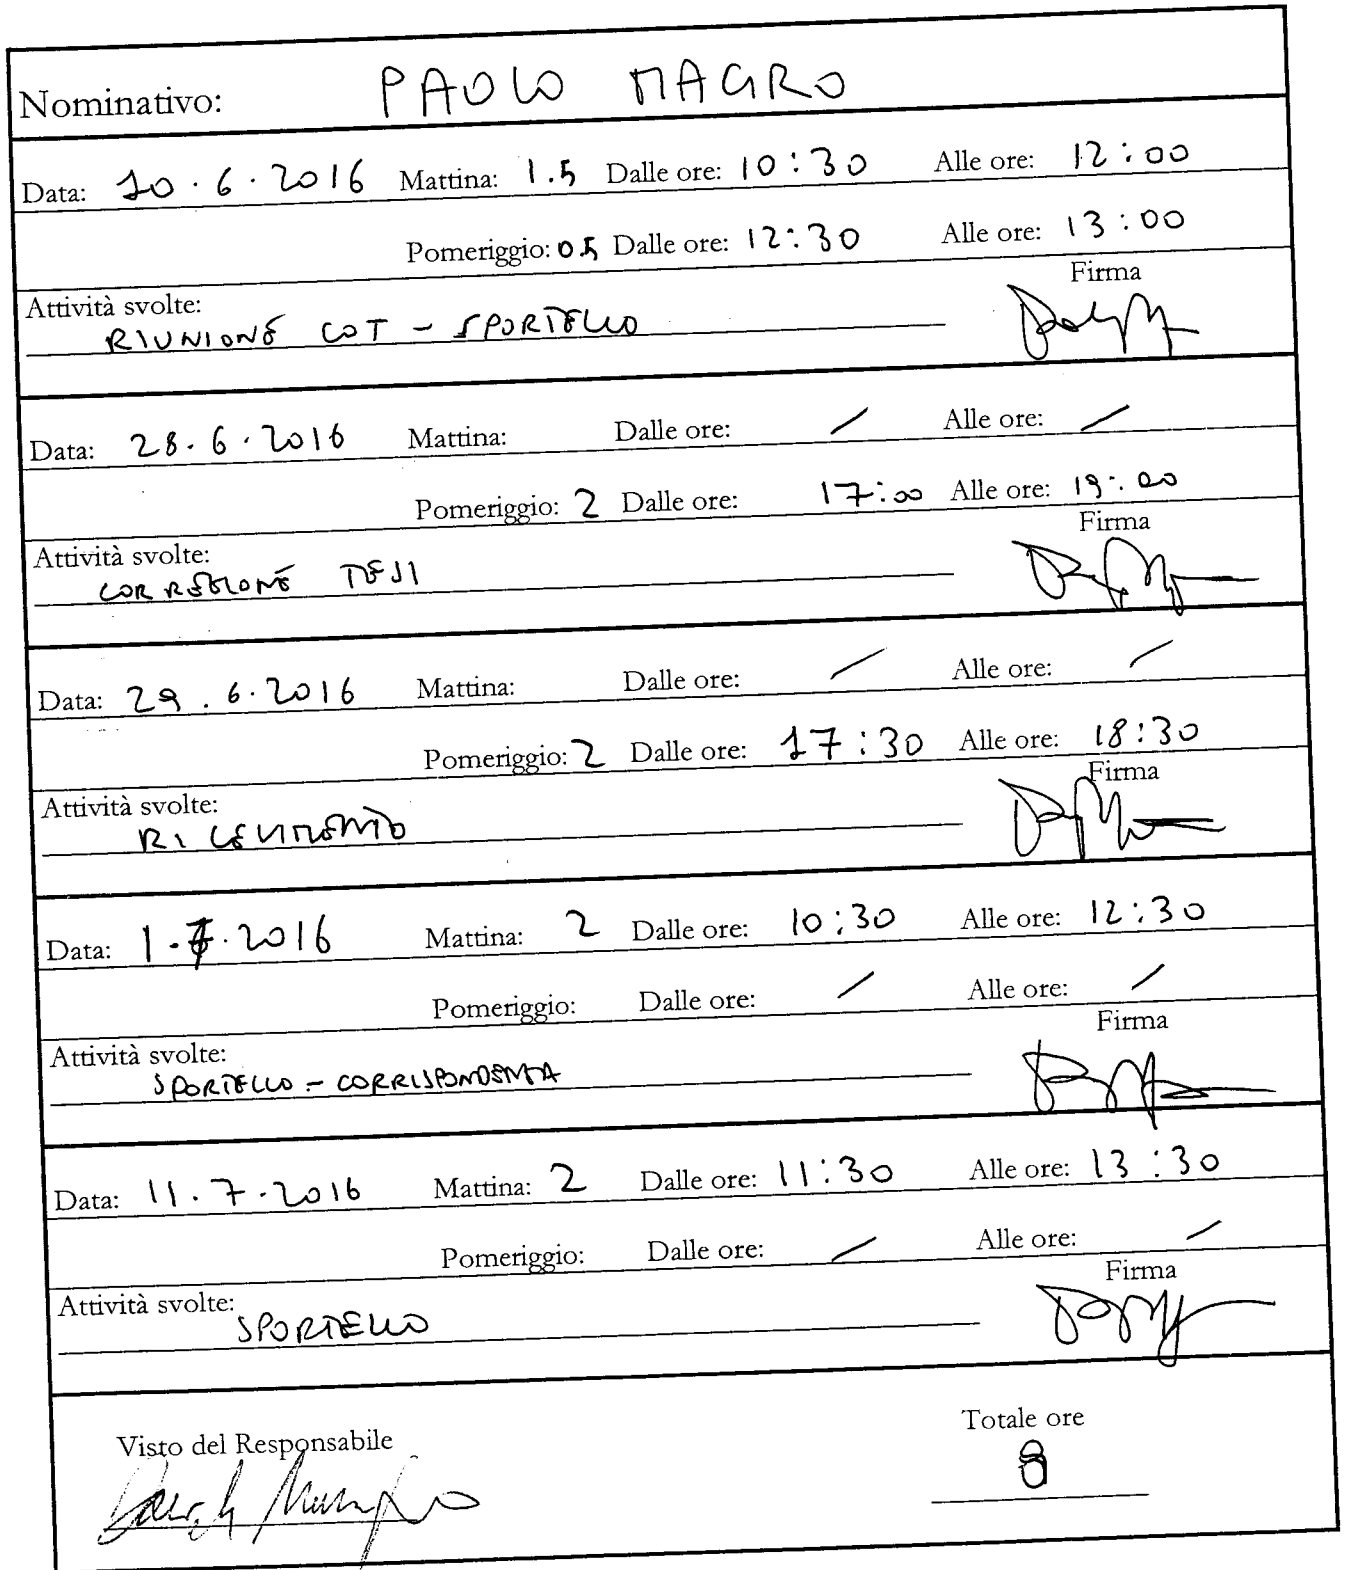 Nominativo: PAOLO MAGRO
Data: 10.6.2016 Mattina: 1.5 Dalle ore: 10:30 Alle ore: 12:00
Pomeriggio: 0.5 Dalle ore: 12:30 Alle ore: 13:00
Firma
Attività svolte:
RIUNIONE COT - SPORTELLO
Data: 28.6.2016 Mattina: Dalle ore: / Alle ore: /
Pomeriggio: 2 Dalle ore: 17:00 Alle ore: 19:00
Firma
Attività svolte:
CORREZIONE TESI
Data: 29.6.2016 Mattina: Dalle ore: / Alle ore: /
Pomeriggio: 2 Dalle ore: 17:30 Alle ore: 18:30
Firma
Attività svolte:
RICEVIMENTO
Data: 1.7.2016 Mattina: 2 Dalle ore: 10:30 Alle ore: 12:30
Pomeriggio: Dalle ore: / Alle ore: /
Firma
Attività svolte:
SPORTELLO - CORRISPONDENZA
Data: 11.7.2016 Mattina: 2 Dalle ore: 11:30 Alle ore: 13:30
Pomeriggio: Dalle ore: / Alle ore: /
Firma
Attività svolte:
SPORTELLO
Totale ore
Visto del Responsabile
8